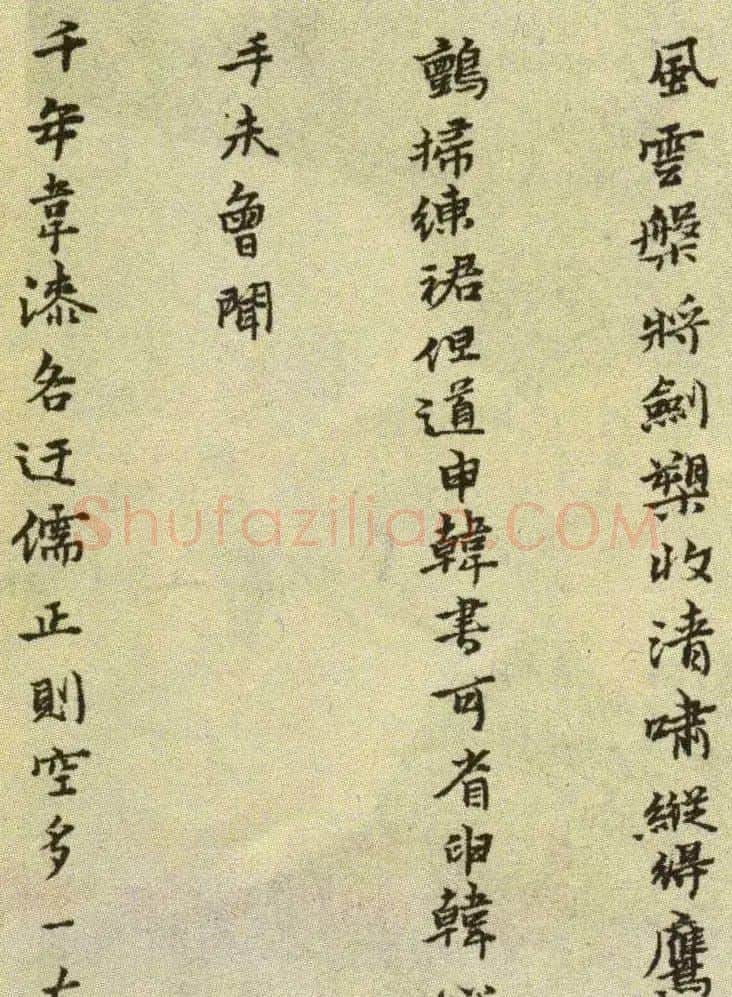 風雲槃將劍槊收清嘯縱鷹
鸇掃練裙但道申韓書可省申韓
手未曾聞
千年韋漆各迂儒正則空多一
Shufazilian.COM